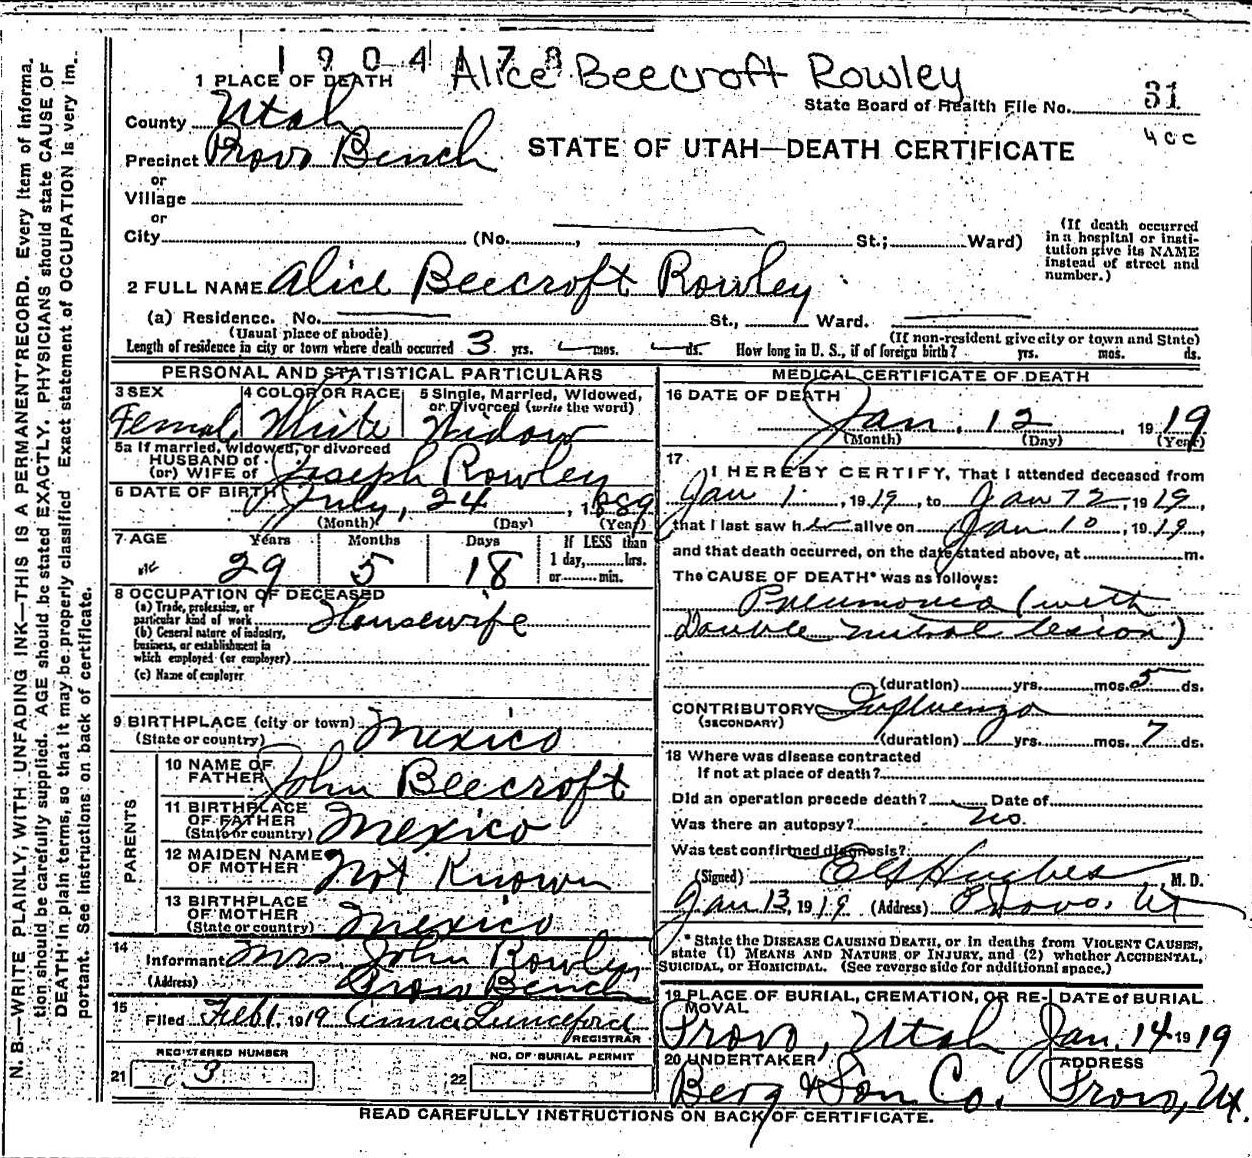 1904178 Alice Beecroft Rowley
1 PLACE OF DEATH
State Board of Health File No. 31
County Utah
4cc
Precinct Provo Bench
STATE OF UTAH—DEATH CERTIFICATE
or
Village
or
City (No. , St.; Ward)
(If death occurred in a hospital or institution give its NAME instead of street and number.)
2 FULL NAME Alice Beecroft Rowley
(a) Residence. No. St., Ward.
(Usual place of abode) (If non-resident give city or town and State)
Length of residence in city or town where death occurred 3 yrs. mos. ds. How long in U. S., if of foreign birth? yrs. mos. ds.
PERSONAL AND STATISTICAL PARTICULARS
3 SEX 4 COLOR OR RACE 5 Single, Married, Widowed, or Divorced (write the word)
Female White Widow
5a If married, widowed, or divorced
HUSBAND of
(or) WIFE of Joseph Rowley
6 DATE OF BIRTH July, 24, 1889
(Month) (Day) (Year)
7 AGE Years Months Days If LESS than
1 day, hrs.
or min.
29 5 18
8 OCCUPATION OF DECEASED
(a) Trade, profession, or
particular kind of work Housewife
(b) General nature of industry,
business, or establishment in
which employed (or employer)
(c) Name of employer
9 BIRTHPLACE (city or town)
(State or country) Mexico
PARENTS
10 NAME OF
FATHER John Beecroft
11 BIRTHPLACE
OF FATHER
(State or country) Mexico
12 MAIDEN NAME
OF MOTHER Not Known
13 BIRTHPLACE
OF MOTHER
(State or country) Mexico
14
Informant Mrs. John Rowley
(Address) Provo Bench
15
Filed Feb 1, 1919 Anna Lunceford
REGISTRAR
REGISTERED NUMBER NO. OF BURIAL PERMIT
21 3 22
MEDICAL CERTIFICATE OF DEATH
16 DATE OF DEATH
Jan. 12, 1919
(Month) (Day) (Year)
17
I HEREBY CERTIFY, That I attended deceased from
Jan 1, 1919, to Jan 12, 1919,
that I last saw her alive on Jan 10, 1919,
and that death occurred, on the date stated above, at m.
The CAUSE OF DEATH* was as follows:
Pneumonia (with
Double mitral lesion)
(duration) yrs. mos. 5 ds.
CONTRIBUTORY Influenza
(SECONDARY)
(duration) yrs. mos. 7 ds.
18 Where was disease contracted
If not at place of death?
Did an operation precede death? Date of
Was there an autopsy? No.
Was test confirmed diagnosis?
(Signed) Hughes, M. D.
Jan 13, 1919 (Address) Provo, Ut
*State the DISEASE CAUSING DEATH, or in deaths from VIOLENT CAUSES,
state (1) MEANS AND NATURE OF INJURY, and (2) whether ACCIDENTAL,
SUICIDAL, or HOMICIDAL. (See reverse side for additional space.)
19 PLACE OF BURIAL, CREMATION, OR RE-
MOVAL DATE of BURIAL
Provo, Utah Jan. 14 1919
20 UNDERTAKER ADDRESS
Berg & Son Co. Provo, Ut.
READ CAREFULLY INSTRUCTIONS ON BACK OF CERTIFICATE.
N. B.—WRITE PLAINLY, WITH UNFADING INK—THIS IS A PERMANENT RECORD. Every item of informa-
tion should be carefully supplied. AGE should be stated EXACTLY. PHYSICIANS should state CAUSE OF
DEATH in plain terms, so that it may be properly classified. Exact statement of OCCUPATION is very im-
portant. See instructions on back of certificate.